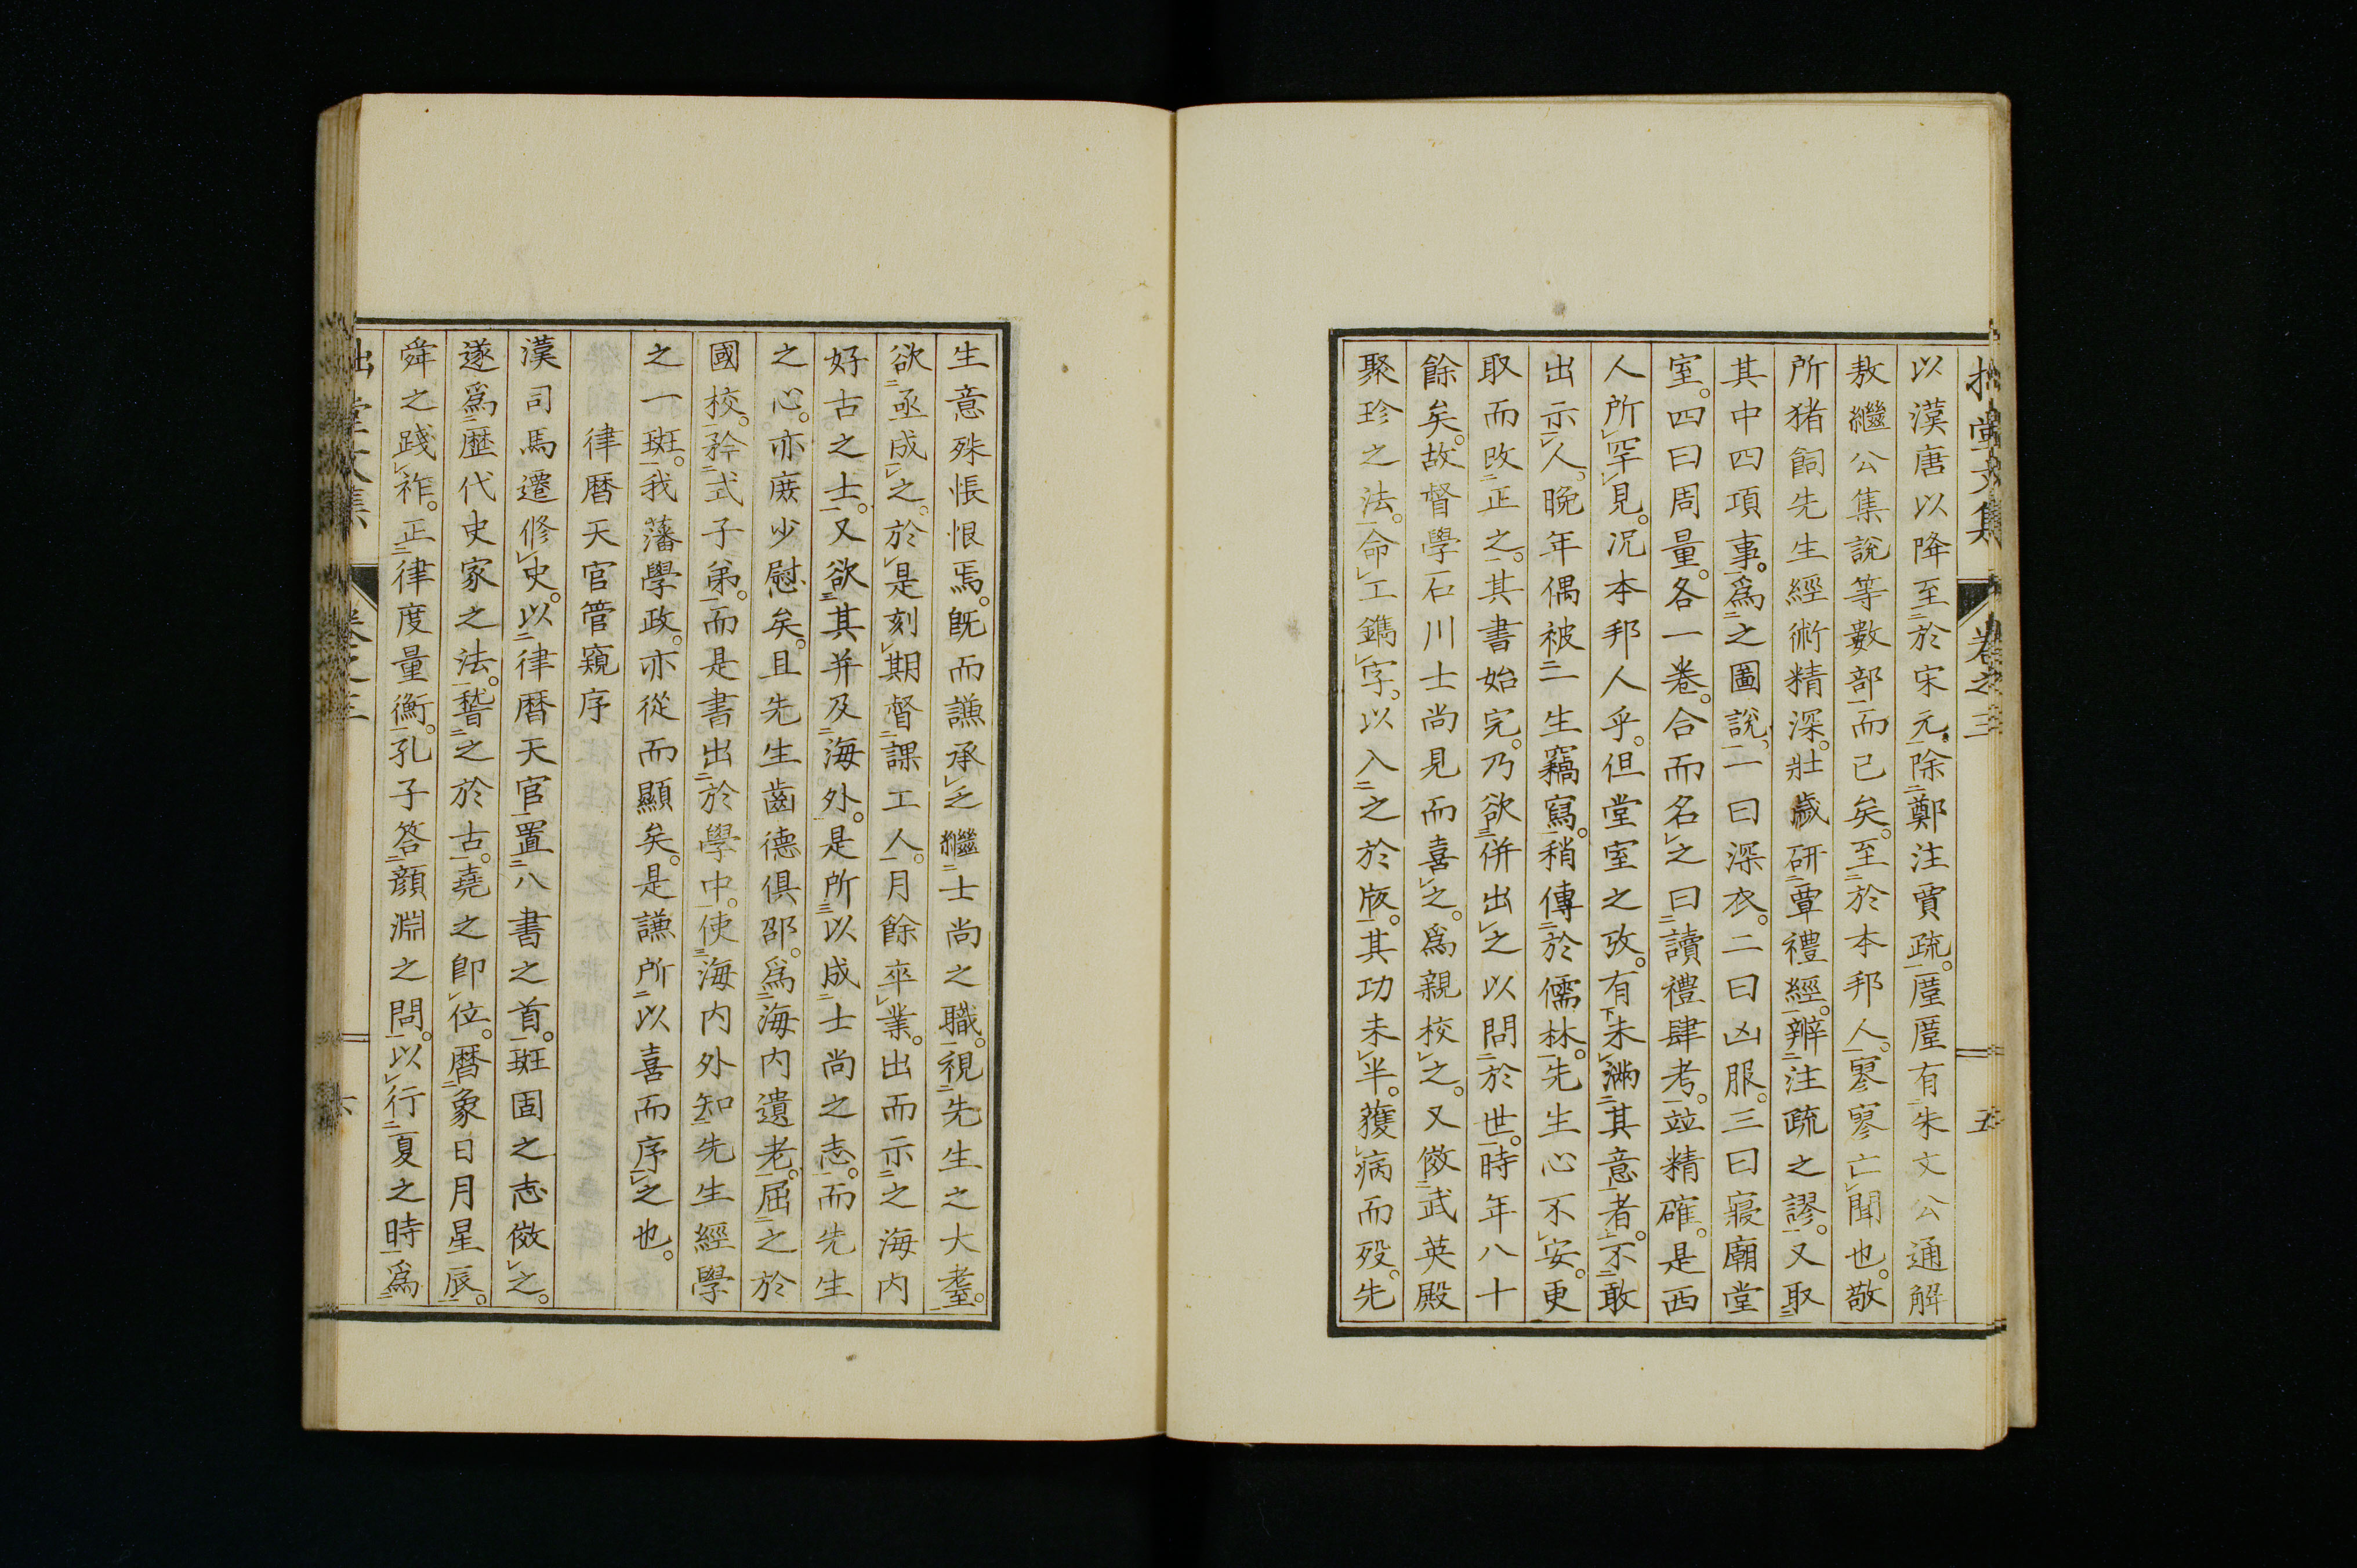 拙堂文集 卷之三 五
以漢唐以降至於宋元除鄭注賈疏。厪厪有朱文公通解
敖繼公集說等數部而已矣。至於本邦人。寥寥亡聞也。敬
所猪飼先生經術精深。壯歲研覃禮經。辨注疏之謬。又取
其中四項事。爲之圖說。一曰深衣。二曰凶服。三曰寢廟堂
室。四曰周量。各一卷。合而名之曰讀禮肆考。竝精確。是西
人所罕見。況本邦人乎。但堂室之攷。有未滿其意者。不敢
出示人。晩年偶被一生竊寫。稍傳於儒林。先生心不安。更
取而改正之。其書始完。乃欲併出之以問於世。時年八十
餘矣。故督學石川士尚見而喜之。爲親校之。又倣武英殿
聚珍之法。命工鐫字。以入之於版。其功未半。獲病而歿。先
生意殊悵恨焉。旣而謙承乏繼士尚之職。視先生之大耋。
欲亟成之。於是刻期督課工人。月餘卒業。出而示之海内
好古之士。又欲其并及海外。是所以成士尚之志。而先生
之心。亦庶少慰矣。且先生齒德俱邵。爲海内遺老。屈之於
國校。矜式子弟。而是書出於學中。使海内外知先生經學
之一斑。我藩學政。亦從而顯矣。是謙所以喜而序之也。
律暦天官管窺序
漢司馬遷修史。以律暦天官置八書之首。班固之志倣之。
遂爲歷代史家之法。嵇之於古。堯之卽位。暦象日月星辰。
舜之踐祚。正律度量衡。孔子答顏淵之問。以行夏之時爲
堂文集 卷之三 六